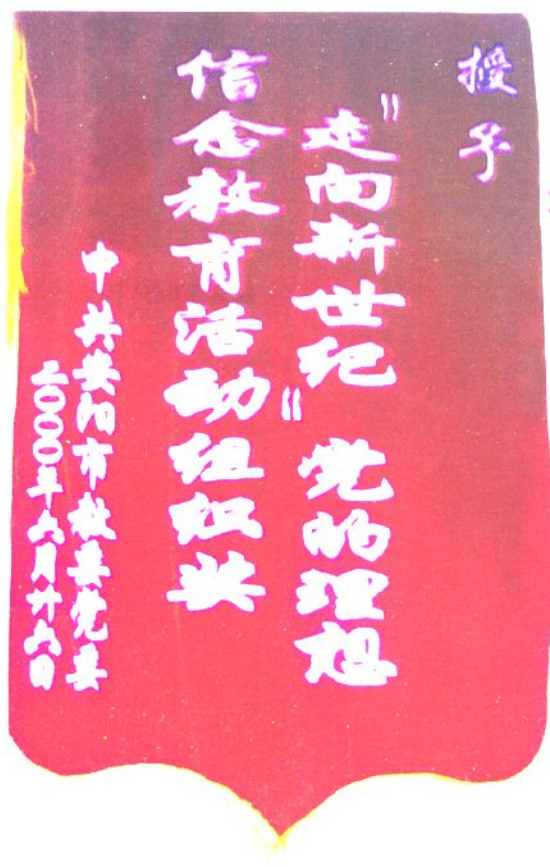 授予
"走向新世纪"党的理想
信念教育活动组织奖
中共安阳市教委党委
二〇〇〇年六月廿六日